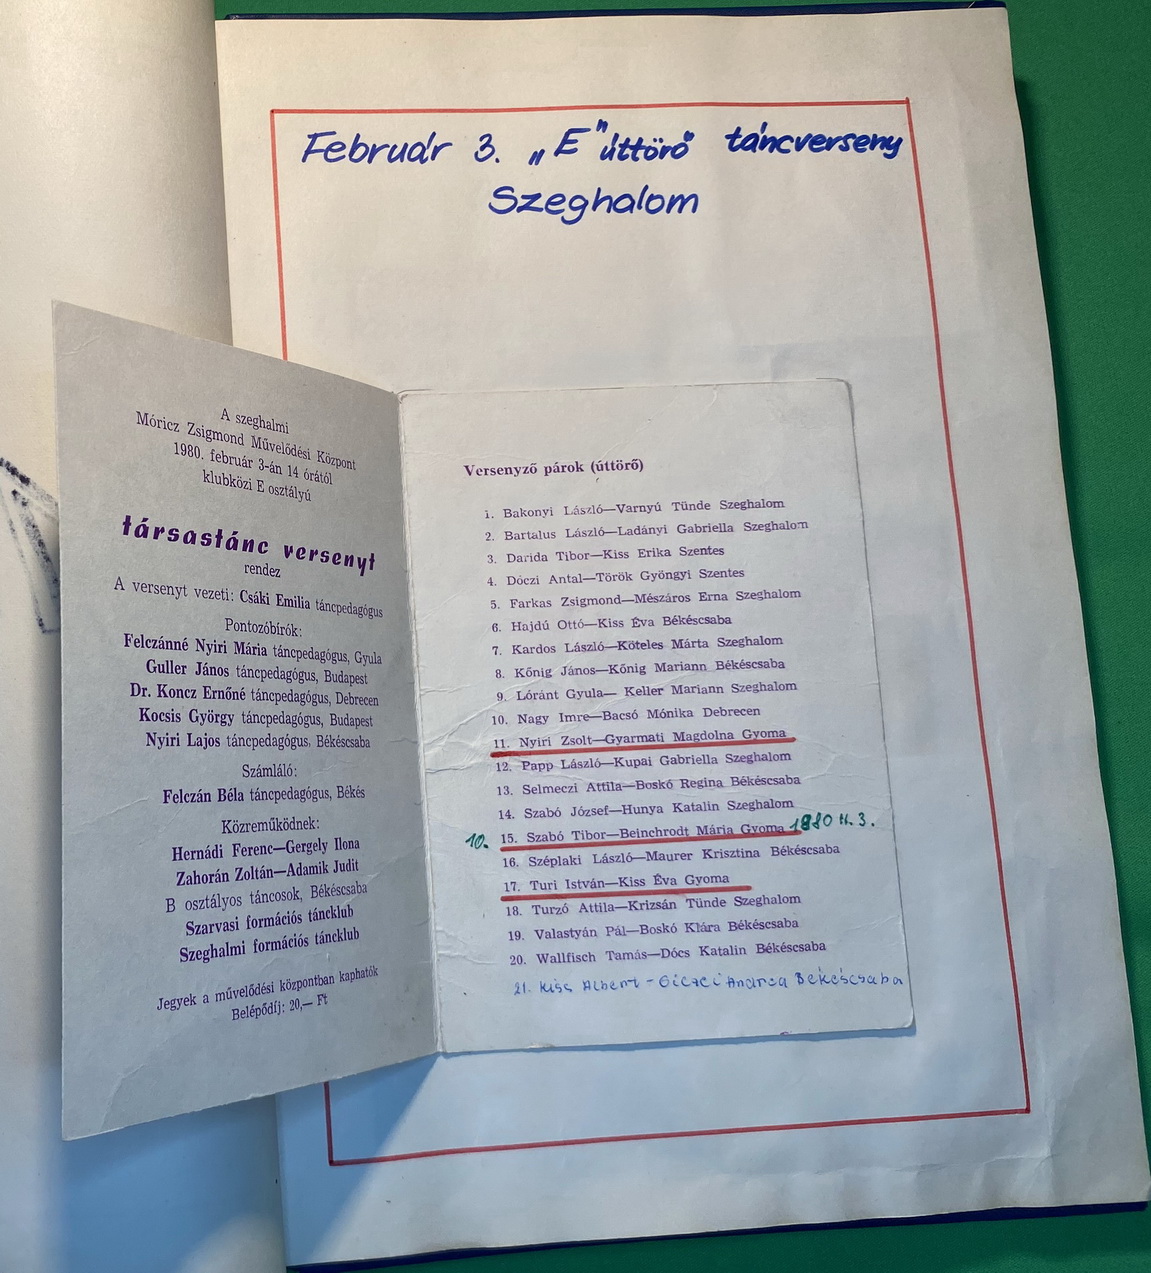 Február 3. „E" úttörő táncverseny
Szeghalom
A szeghalmi
Móricz Zsigmond Művelődési Központ
1980. február 3-án 14 órától
klubközi E osztályú
társastánc versenyt
rendez
A versenyt vezeti: Csáki Emilia táncpedagógus
Pontozóbírók:
Felczánné Nyiri Mária táncpedagógus, Gyula
Guller János táncpedagógus, Budapest
Dr. Koncz Ernőné táncpedagógus, Debrecen
Kocsis György táncpedagógus, Budapest
Nyiri Lajos táncpedagógus, Békéscsaba
Számláló:
Felczán Béla táncpedagógus, Békés
Közreműködnek:
Hernádi Ferenc—Gergely Ilona
Zahorán Zoltán—Adamik Judit
B osztályos táncosok, Békéscsaba
Szarvasi formációs táncklub
Szeghalmi formációs táncklub
Jegyek a művelődési központban kaphatók
Belépődíj: 20,— Ft
Versenyző párok (úttörő)
1. Bakonyi László—Varnyú Tünde Szeghalom
2. Bartalus László—Ladányi Gabriella Szeghalom
3. Darida Tibor—Kiss Erika Szentes
4. Dóczi Antal—Török Gyöngyi Szentes
5. Farkas Zsigmond—Mészáros Erna Szeghalom
6. Hajdú Ottó—Kiss Éva Békéscsaba
7. Kardos László—Köteles Márta Szeghalom
8. Kőnig János—Kőnig Mariann Békéscsaba
9. Lóránt Gyula— Keller Mariann Szeghalom
10. Nagy Imre—Bacsó Mónika Debrecen
11. Nyiri Zsolt—Gyarmati Magdolna Gyoma
12. Papp László—Kupai Gabriella Szeghalom
13. Selmeczi Attila—Boskó Regina Békéscsaba
14. Szabó József—Hunya Katalin Szeghalom
10. 15. Szabó Tibor—Beinchrodt Mária Gyoma 1980 II. 3.
16. Széplaki László—Maurer Krisztina Békéscsaba
17. Turi István—Kiss Éva Gyoma
18. Turzó Attila—Krizsán Tünde Szeghalom
19. Valastyán Pál—Boskó Klára Békéscsaba
20. Wallfisch Tamás—Dócs Katalin Békéscsaba
21. Kiss Albert - Andrea Békéscsaba